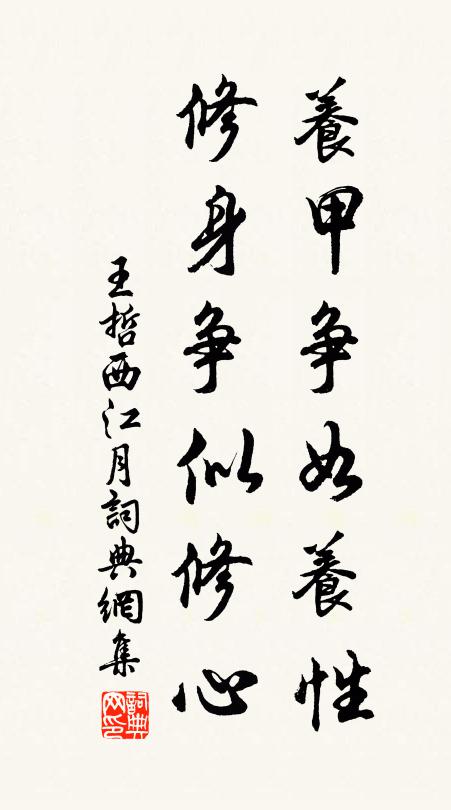 養甲爭如養性
修身爭似修心
王哲西江月詞典網集
詞典网印